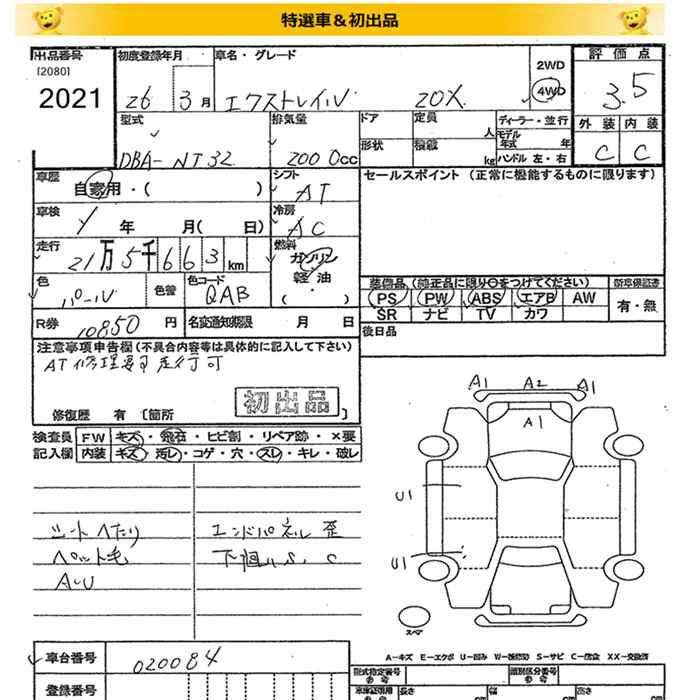 特選車＆初出品
出品番号 初度登録年月 車名・グレード 2WD 評価点
[2080] 4WD
2021 26 3月 エクストレイル 20X 3.5
型式 排気量 ドア 定員 人 ディーラー・並行 外装 内装
モデル年式 年
DBA-NT32 2000cc 形状 積載 kg ハンドル 左・右 C C
車歴 自家用・( ) シフト AT セールスポイント (正常に機能するものに限ります)
車検 年 月( 日) 冷房 AC
走行 21万5千663km 燃料 ガソリン 軽油 ・( )
色 パール 色替 色コード QAB
装備品(純正品に限り○をつけてください) 新車保証書
PS PW ABS エアB AW 有・無
SR ナビ TV カワ
R券 10850円 名変通知期限 月 日 後日品
注意事項申告欄(不具合内容等は具体的に記入して下さい)
AT修理要す走行可
初出品
修復歴 有 [箇所 ]
検査員 FW キズ・飛石・ヒビ割・リペア跡・×要
記入欄 内装 キズ・汚レ・コゲ・穴・スレ・キレ・破レ
シートヘたり エンドパネル歪
ペット毛 下廻りS、C
A・U
A1 A2 A1
A1
U1
U1
スペア
A-キズ E-エクボ U-凹み W-補修跡 S-サビ C-腐食 XX-交換済
車台番号 020084
型式指定番号 参考 類別区分番号 参考
登録番号
長さ cm 幅 cm 高さ cm